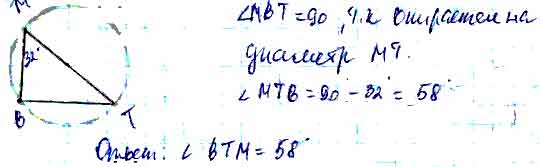 M
32°
B
T
∠MBT = 90, т.к опирается на
диаметр МТ.
∠MTB = 90° - 32° = 58°
Ответ: ∠ BTM = 58°